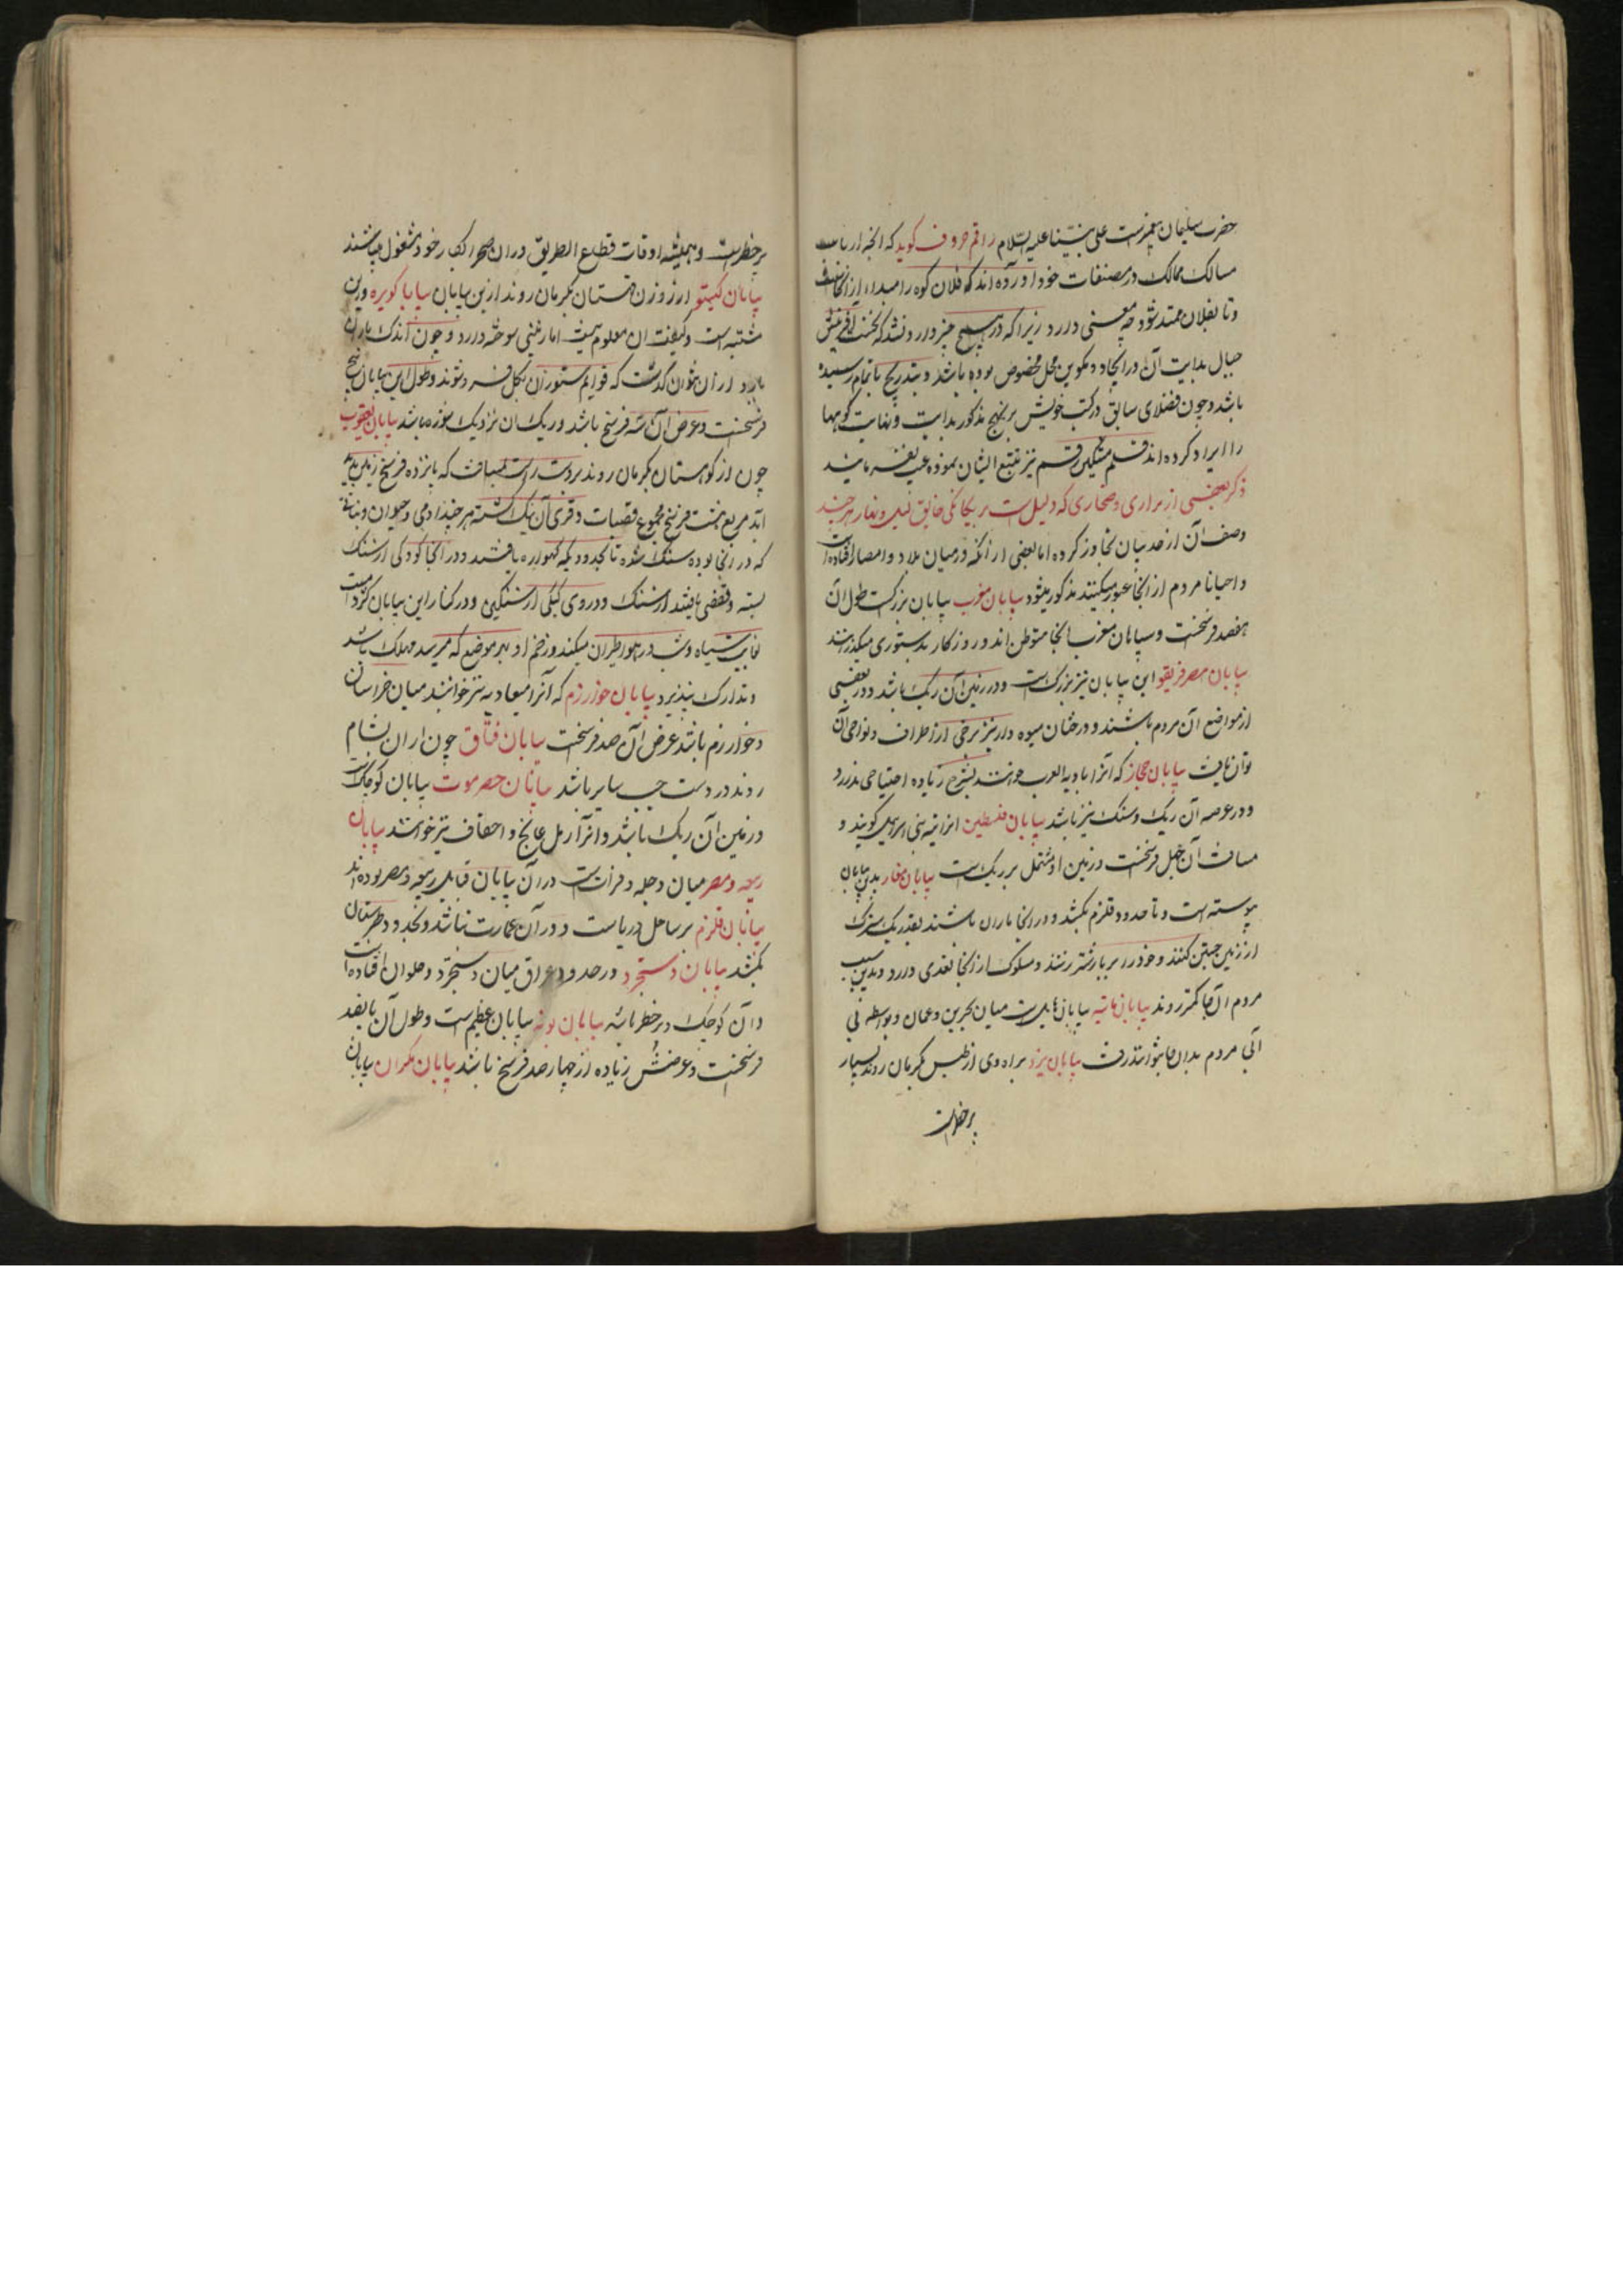 حضرت سلیمان پیغمبرست علی نبینا علیه السّلام راقم حروف کوید که انچه ارباب
مسالک ممالک در مصنفات خود اورده اند که فلان کوه را مبداء از
و تا بفلان ممتد شود چه معنی دارد زیرا که در هیچ خبر وارد نشد که نخست افرینش
جبال بدایت آن در ایجاد و تکوین محل مخصوص بوده باشد و بتدریج باتمام رسیده
باشد و چون فضلای سابق در کتب خویش بر نهج مذکور بدایت و نهایت کوهها
را ایراد کرده اند قلم مشکین رقم نیز تتبع ایشان نموده
ذکر بعضی از براری و صحاری که دلیل ست بر یکانکی خالق لیل و نهار هر چند
وصف آن از حد بیان تجاوز کرده اما بعضی از آنکه در میان بلاد و امصار افتاده است
و احیانا مردم از انجا عبور میکنند مذکور میشود بیابان مغرب بیابان بزرکست طول آن
هفصد فرسخست و سیاهان مغرب انجا متوطن اند و روزکار بدستوری میکذرانند
بیابان مصر این بیابان نیز بزرکست و در زمین آن ریک باشد و در بعضی
از مواضع آن مردم باشند و درختان میوه دار نیز برخی از اطراف و نواحی آن
توان یافت بیابان حجاز که آنرا بادیه العرب خوانند بشرح زیاده احتیاجی ندارد
و در عرصه آن ریک و سنک نیز باشد بیابان فلسطین انرا تیه بنی اسرایل کویند و
مسافت آن چهل فرسخست و زمین او مشتمل بر ریک است بیابان بدین بیابان
پیوسته است و تا حدود قلزم بکشد و در انجا ماران باشند بقدر یک
از زمین جستن کنند و خود را بر بار شتر زنند و سلوک از انجا تعذری دارد و بدین سبب
مردم آنجا کمتر روند بیابان بیابان ست میان بحرین و عمان و بواسطه بی
آبی مردم بدانجا نتوانند رفت بیابان یزد براه وی از طبس بکرمان روند بسیار
پر خطرست
پر خطرست و همیشه اوقات قطاع الطریق در ان صحرا بکار خود مشغول میباشند
بیابان از زوزن قهستان بکرمان روند ازین بیابان بیابان کویره و این
مشتبه است و کیفیت ان معلوم نیست اما زمینی سوخته دارد و چون اندک باران
بارد از ان نتوان کذشت که قوایم ستوران بکل فرو شوند و طول این بیابان پنج
فرسخست و عرض آن سه فرسخ باشد و ریک ان نزدیک شوره باشد بیابان یعقوب
چون از کوهستان بکرمان روند بر دست راست مسافت که پانزده فرسخ
اند مربع هشت فرسخ مجموع قصبات و قری آن سنک کشته هر چند ادمی و حیوان و نباتی
که در انجا بوده سنک شده تا بحدودیکه کهواره یافتند و در انجا کودکی از سنک
بسته و قفصی یافتند از سنک و در وی کبکی از سنکین و در کنار این بیابان کژدمیست
بغایت سیاه و شب در هوا طیران میکند و زخم او بهر موضع که میرسد مهلک باشد
و تدارک نپذیرد بیابان خوارزم که آنرا نیز خوانند میان خراسان
و خوارزم باشد عرض آن صد فرسخست بیابان چون از ان بشام
روند در دست چپ سایر باشد بیابان حضرموت بیابان کوچکست
و زمین آن ریک باشد و انرا رمل عالج و احقاف نیز خوانند بیابان
ربیعه و مضر میان دجله و فرات ست در آن بیابان قبایل ربیعه و مضر بوده اند
بیابان قلزم بر ساحل دریاست و در آن عمارت نباشد و بحدود طبرستان
بکشد بیابان دستجرد و در حدود عراق میان دستجرد و حلوان افتاده است
و آن کوچک و پر خطر باشد بیابان بیابان عظیم ست و طول آن پانصد
فرسخست و عرضش زیاده از چهار صد فرسخ باشد بیابان مکران بیابان